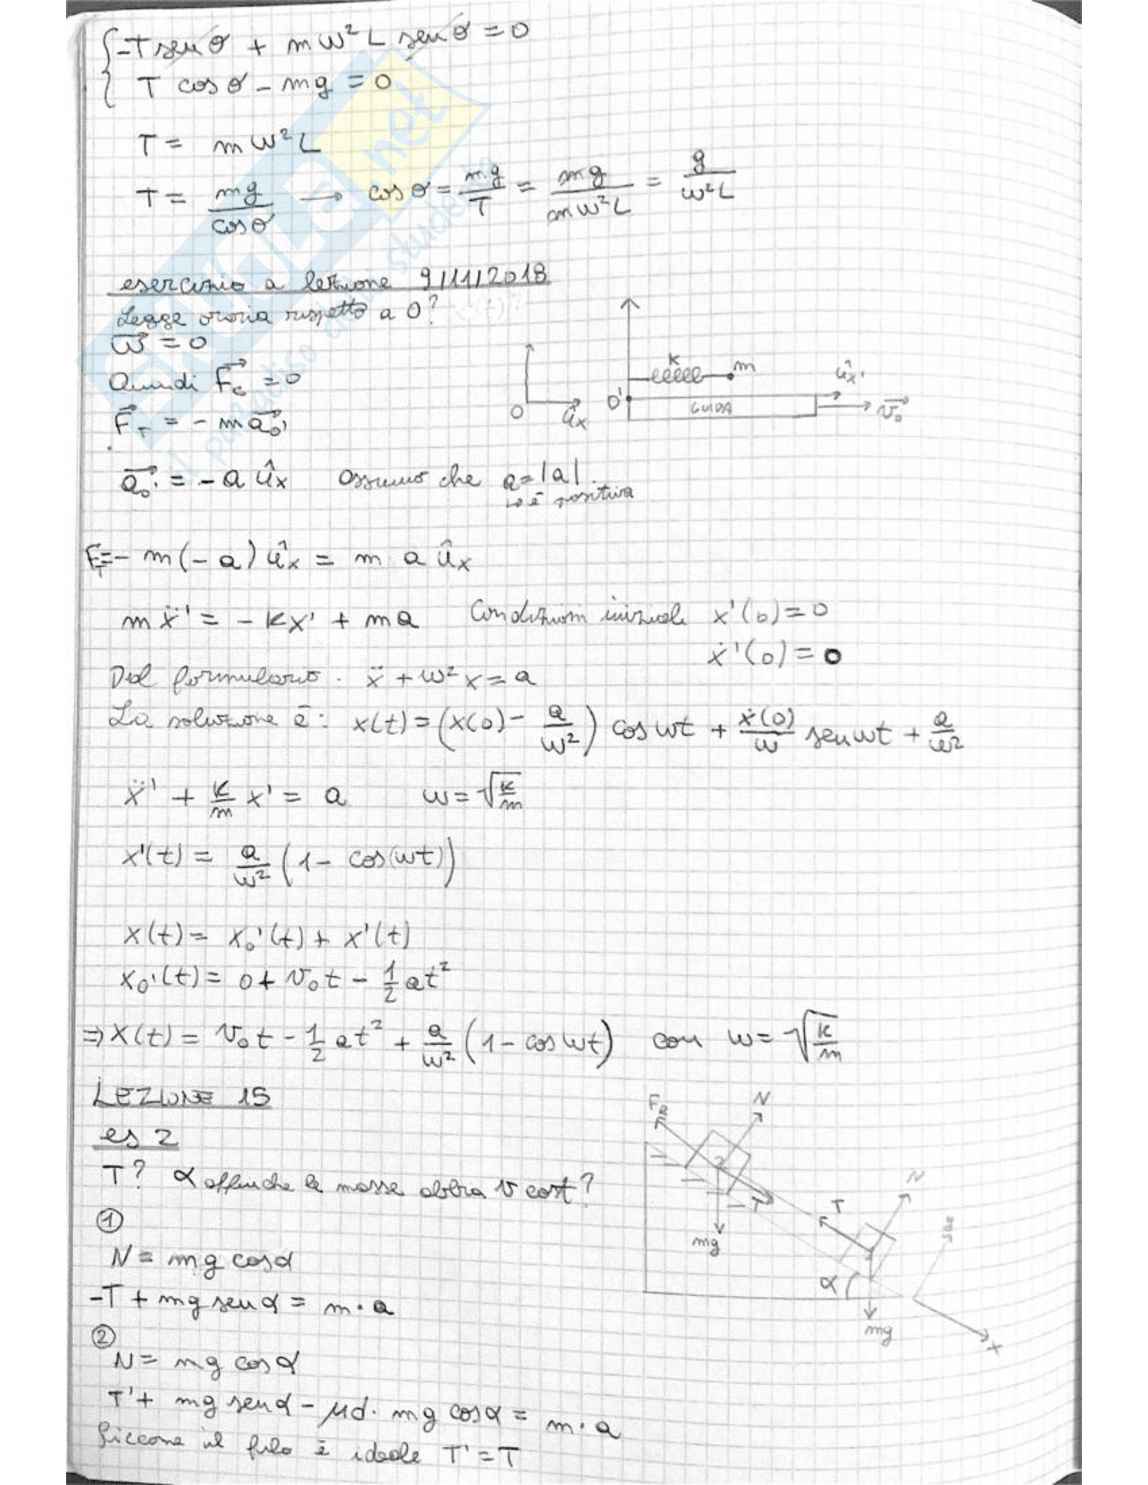 -T sen θ + mω²L sen θ = 0
T cos θ - mg = 0
T = mω²L
T = mg/cos θ → cos θ = mg/T = mg/mω²L = g/ω²L
esercizio a lezione 9/11/2018
Legge oraria rispetto a O?
ω = 0
Quindi Fc = 0
F_T = - m a₀'
a₀' = - a ûx assumo che a = |a|
↳ è positiva
K m
O ûx O' GUIDA ûx' v₀
F_T = - m(-a) ûx = m a ûx
mẍ' = - Kx' + ma Condizioni iniziali x'(0) = 0
ẋ'(0) = 0
Dal formulario. ẍ + ω²x = a
La soluzione è: x(t) = (x(0) - a/ω²) cos ωt + ẋ(0)/ω sen ωt + a/ω²
ẍ' + K/m x' = a ω = √K/m
x'(t) = a/ω² (1 - cos(ωt))
x(t) = x₀'(t) + x'(t)
x₀'(t) = 0 + v₀t - 1/2 at²
⇒ x(t) = v₀t - 1/2 at² + a/ω² (1 - cos ωt) con ω = √K/m
LEZIONE 15
es 2
T? α affinché le masse abbia v cost?
①
N = mg cos α
-T + mg sen α = m · a
②
N = mg cos α
T' + mg sen α - μd · mg cos α = m · a
Siccome il filo è ideale T' = T
N
2
T
mg
N
T
1
α
mg
x